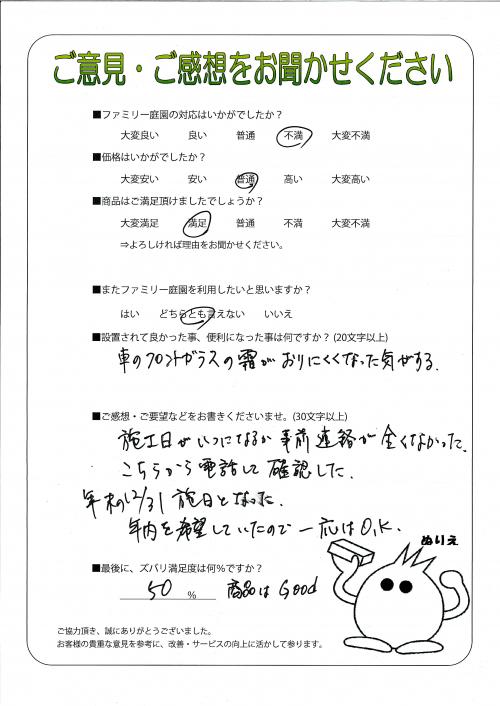 ご意見・ご感想をお聞かせください
■ファミリー庭園の対応はいかがでしたか？
大変良い 良い 普通 不満 大変不満
■価格はいかがでしたか？
大変安い 安い 普通 高い 大変高い
■商品はご満足頂けましたでしょうか？
大変満足 満足 普通 不満 大変不満
⇒よろしければ理由をお聞かせください。
■またファミリー庭園を利用したいと思いますか？
はい どちらとも言えない いいえ
■設置されて良かった事、便利になった事は何ですか？(20文字以上)
車のフロントガラスの霜がおりにくくなった気がする.
■ご感想・ご要望などをお書きくださいませ。(30文字以上)
施工日がいつになるか事前連絡が全くなかった.
こちらから電話して確認した.
年末の12/31施日となった.
年内を希望していたので一応はO.K.
ぬりえ
■最後に、ズバリ満足度は何％ですか？
50 % 商品は Good
ご協力頂き、誠にありがとうございました。
お客様の貴重な意見を参考に、改善・サービスの向上に活かして参ります。